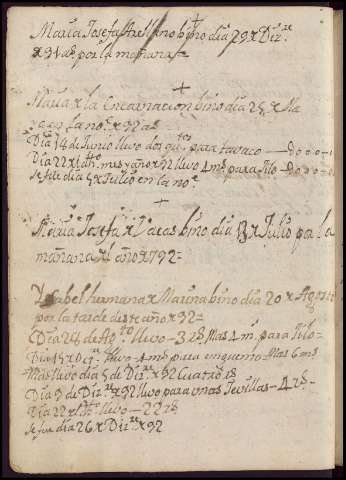 Maria Josefa Arellano bino dia 29 x Diz.re
x 91 as por la mañana
Maria x la Encarnacion bino dia 25 x Ma
yo en la no.e x 92 as
Dia 14 de Junio llevo dos qu.tos para tavaco
Dia 22 x dho. mes y año x 92 llevo 4 ms para Ilo
Se fue dia 5 x Julio en la no.e
Maria Josefa x bino dia 13 x Julio por la
mañana del año x 792 =
Ysabel hermana x Marina bino dia 20 x Agosto
por la tarde deste año x 92 =
Dia 24 de Ag.to llevo - 3 rs mas 4 m. para Ilo -
Dia 15 x llevo 4 ms para unguento mas 6 ms
Mas llevo dia 5 de Diz.re x 92 Cuatro rs
Dia 9 de Diz.re x 92 llevo para unas Sevillas - 4 rs -
Dia 22 x dho. llevo - 22 rs
Se fue dia 26 x Diz.re x 92